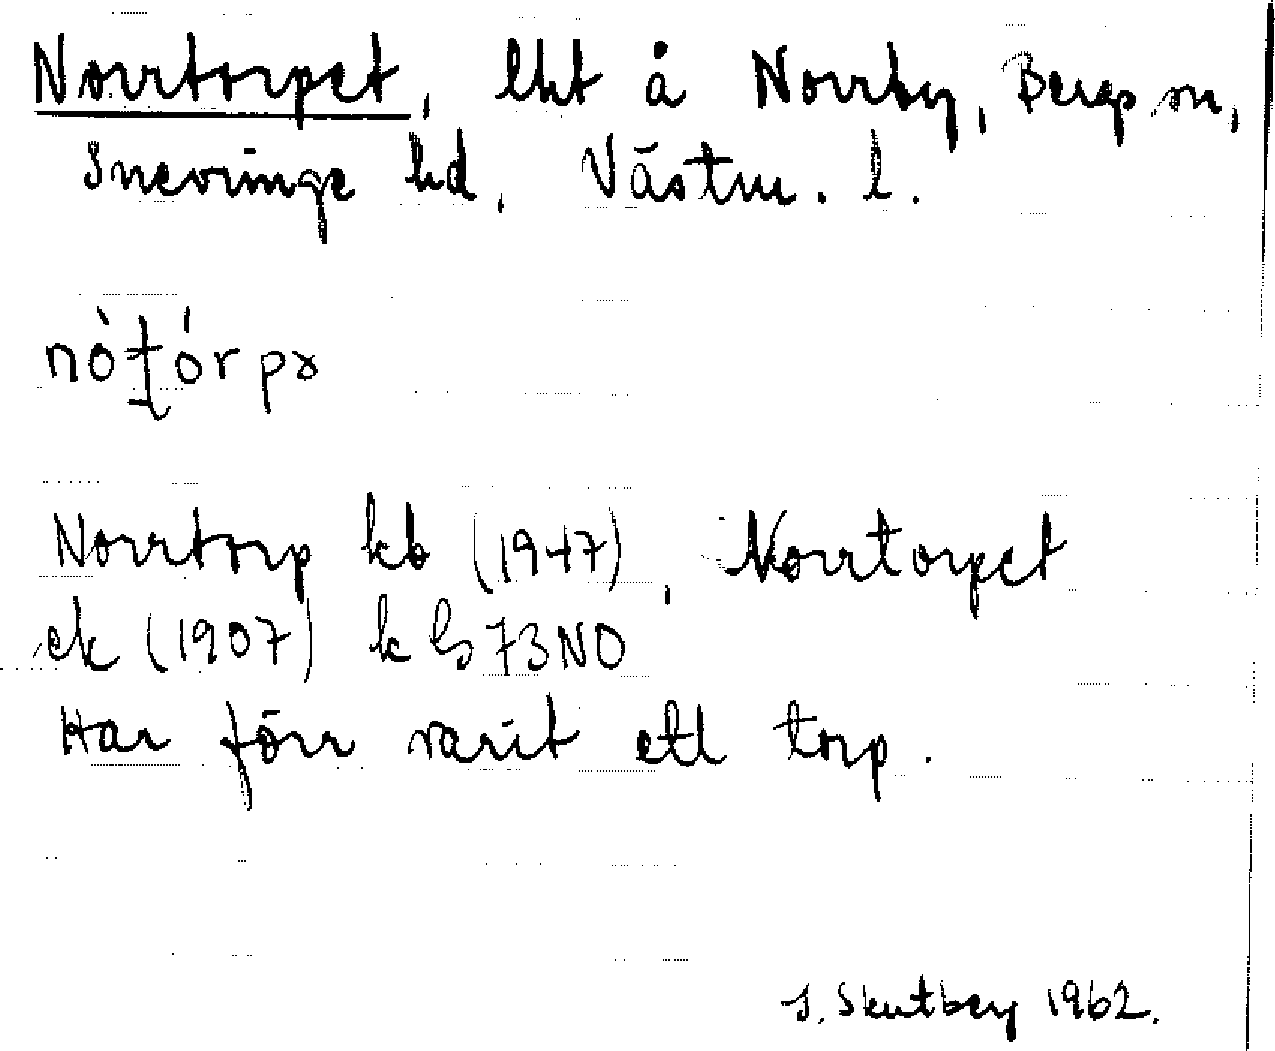 Norrtorpet, lht å Norrby, Bergs sn,
Snevringe hd, Västm. l.
nò̱ƫórpə
Norrtorp kb (1947), Norrtorpet
ek (1907) k b 73NO
Har förr varit ett torp.
S. Skutberg 1962.